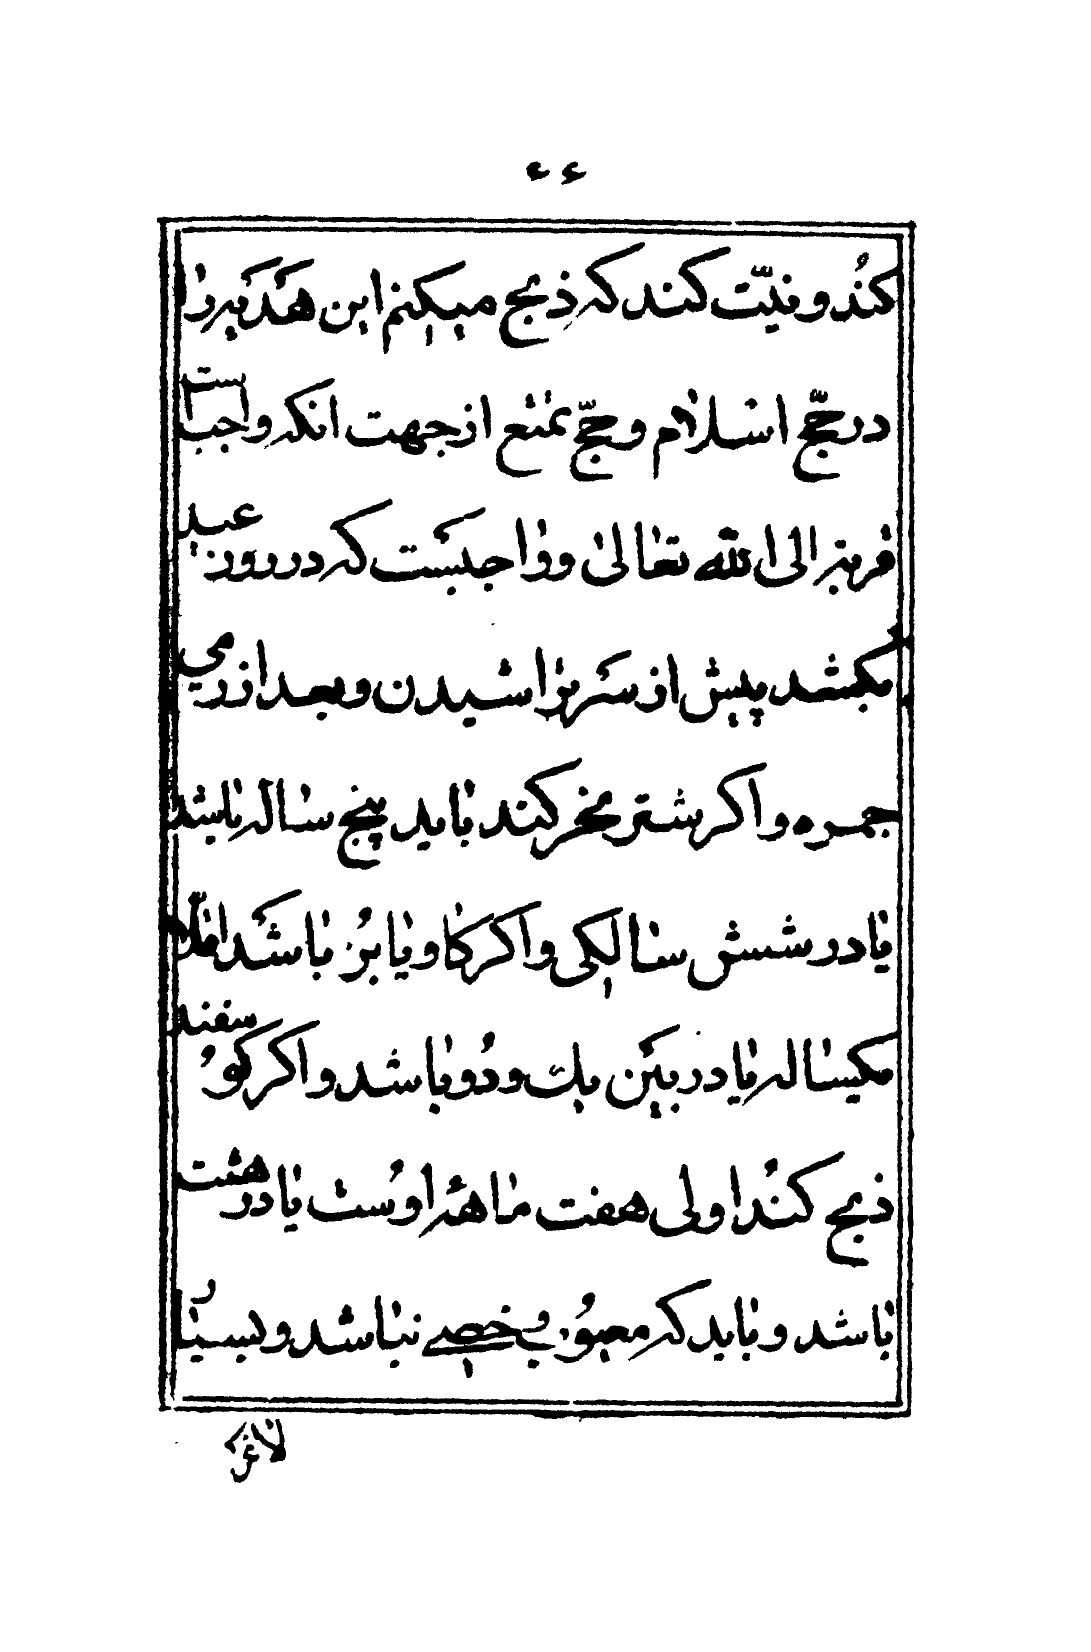 ۴۴
کند و نیّت کند که ذبح میکنم این هدیه را
در حجّ اسلام و حجّ تمتع از جهت انکه واجب است
قربة الی الله تعالی و واجبست که در روز عید
بکشد پیش از سر تراشیدن و بعد از رمی
جمره و اکر شتر نحر کند باید پنج ساله باشد
یا در شش سالکی و اکر کاو یا بز باشد اقلا
یکساله یا در بین یک و دو باشد و اکر کوسفند
ذبح کند اولی هفت ماهه اوست یا در هشت
باشد و باید که معیوب و خصی نباشد و بسیار
لاغر